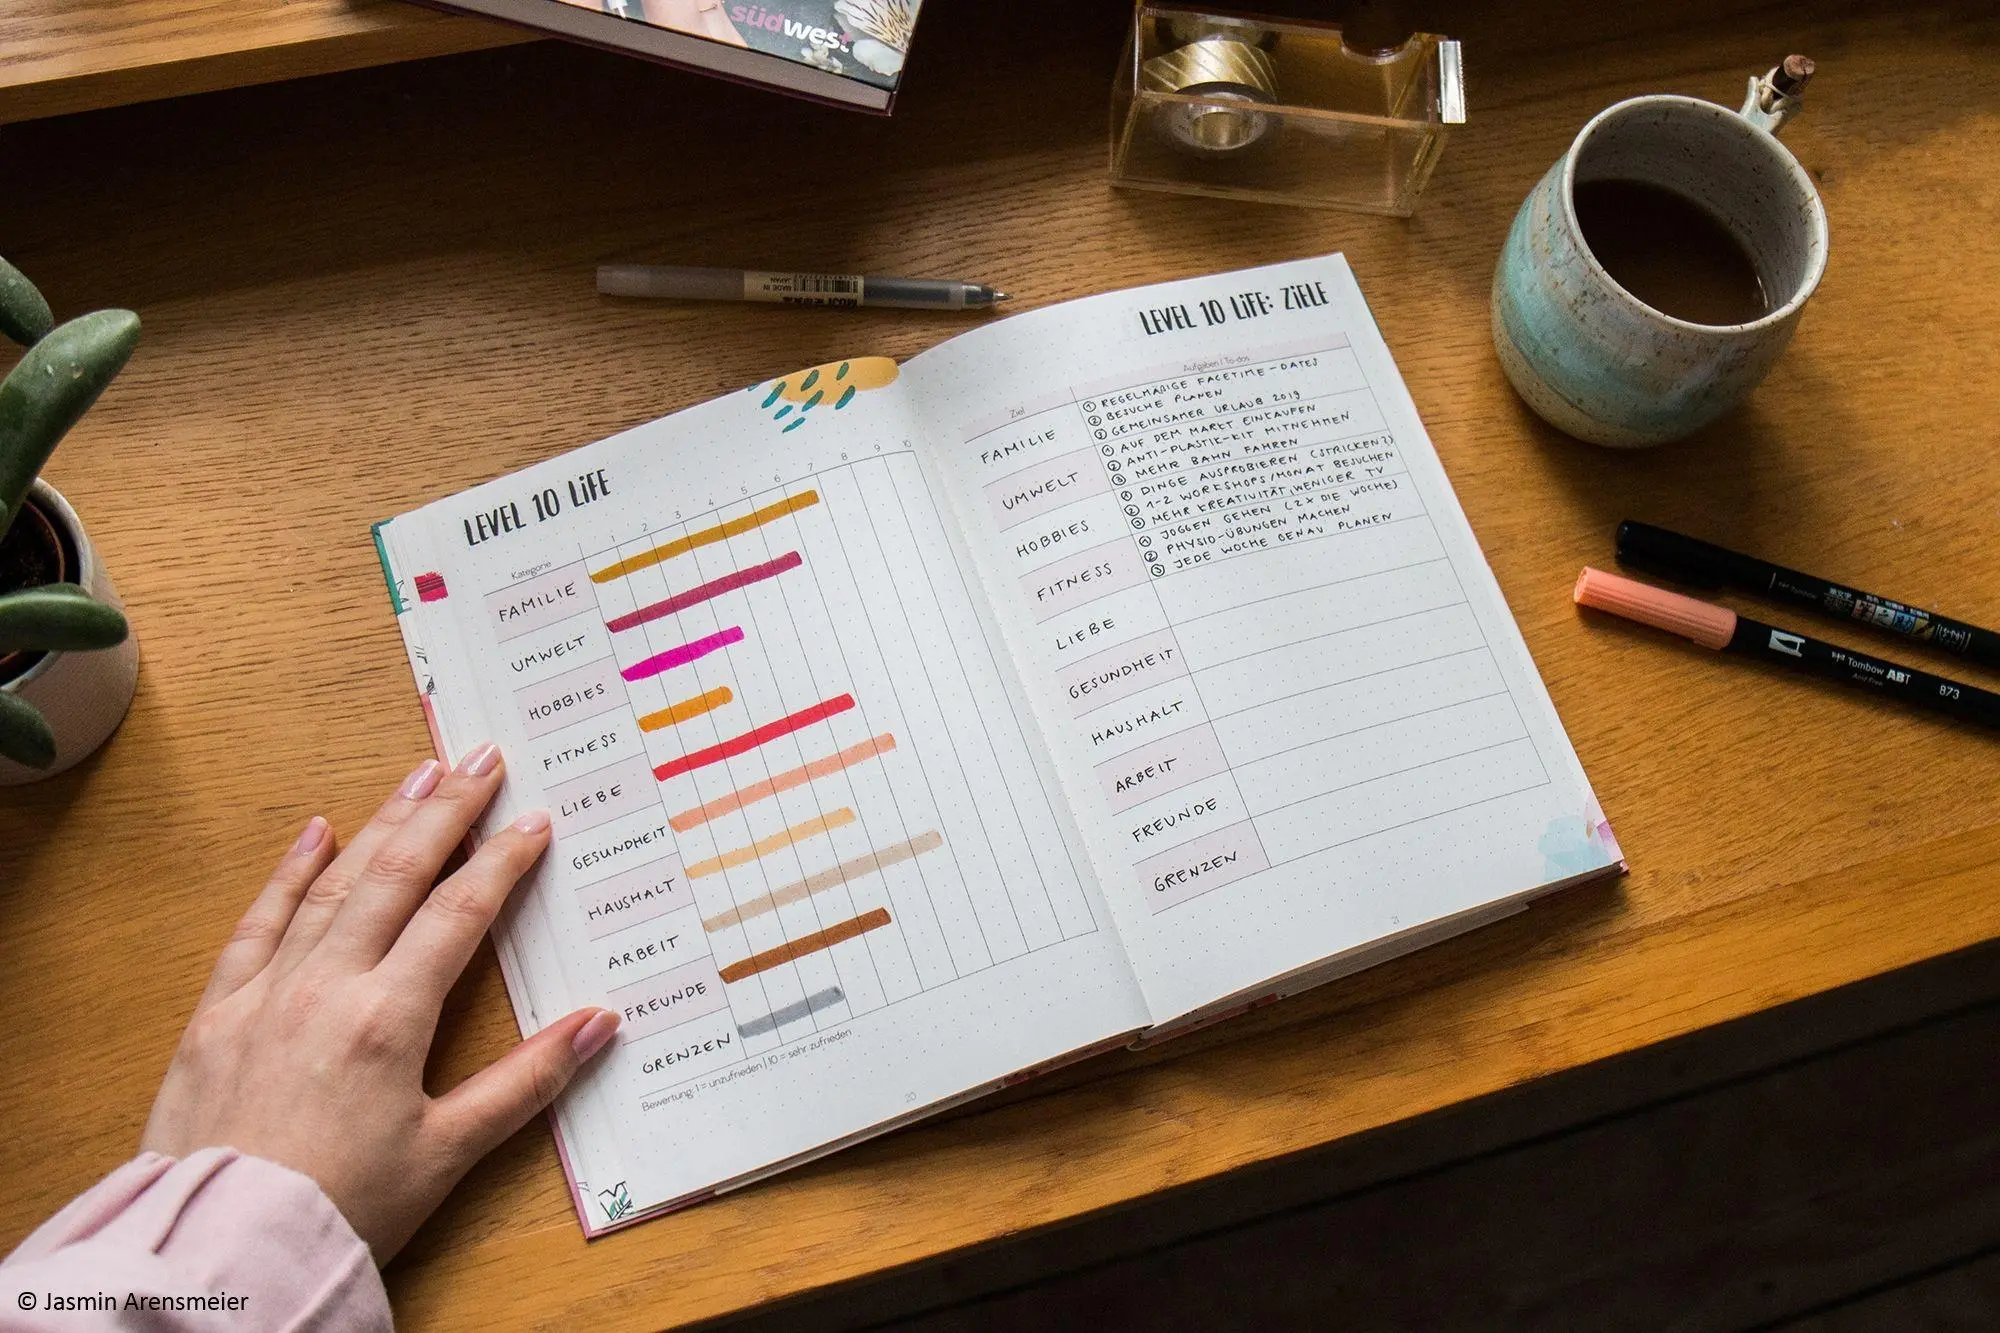 südwest
MADE IN
JAPAN
MUJI
LEVEL 10 LiFE
Kategorie
1 2 3 4 5 6 7 8 9 10
FAMILIE
UMWELT
HOBBIES
FITNESS
LIEBE
GESUNDHEIT
HAUSHALT
ARBEIT
FREUNDE
GRENZEN
Bewertung: 1 = unzufrieden | 10 = sehr zufrieden
20
LEVEL 10 LiFE: ZiELE
Ziel
Aufgaben / To-dos
FAMILIE
① REGELMÄßIGE FACETIME-DATES
② BESUCHE PLANEN
③ GEMEINSAMER URLAUB 2019
UMWELT
① AUF DEM MARKT EINKAUFEN
② ANTI-PLASTIK-KIT MITNEHMEN
③ MEHR BAHN FAHREN
HOBBIES
① DINGE AUSPROBIEREN (STRICKEN?)
② 1-2 WORKSHOPS/MONAT BESUCHEN
③ MEHR KREATIVITÄT, WENIGER TV
FITNESS
① JOGGEN GEHEN (2X DIE WOCHE)
② PHYSIO-ÜBUNGEN MACHEN
③ JEDE WOCHE GENAU PLANEN
LIEBE
GESUNDHEIT
HAUSHALT
ARBEIT
FREUNDE
GRENZEN
21
Tombow ABT 873
Acid Free
© Jasmin Arensmeier